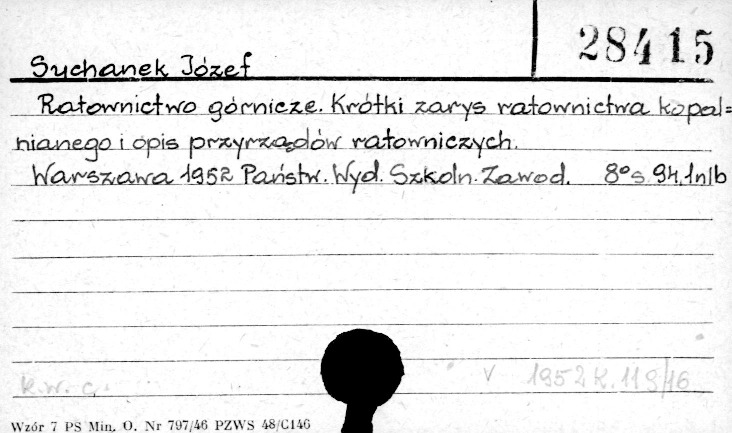 28415
Suchanek Józef
Ratownictwo górnicze. Krótki zarys ratownictwa kopal=
nianego i opis przyrządów ratowniczych.
Warszawa 1952 Państw. Wyd. Szkoln. Zawod. 8° s. 94, 1nlb
k.w. c.
v 1952 K. 119/16
Wzór 7 PS Min. O. Nr 797/46 PZWS 48/C146